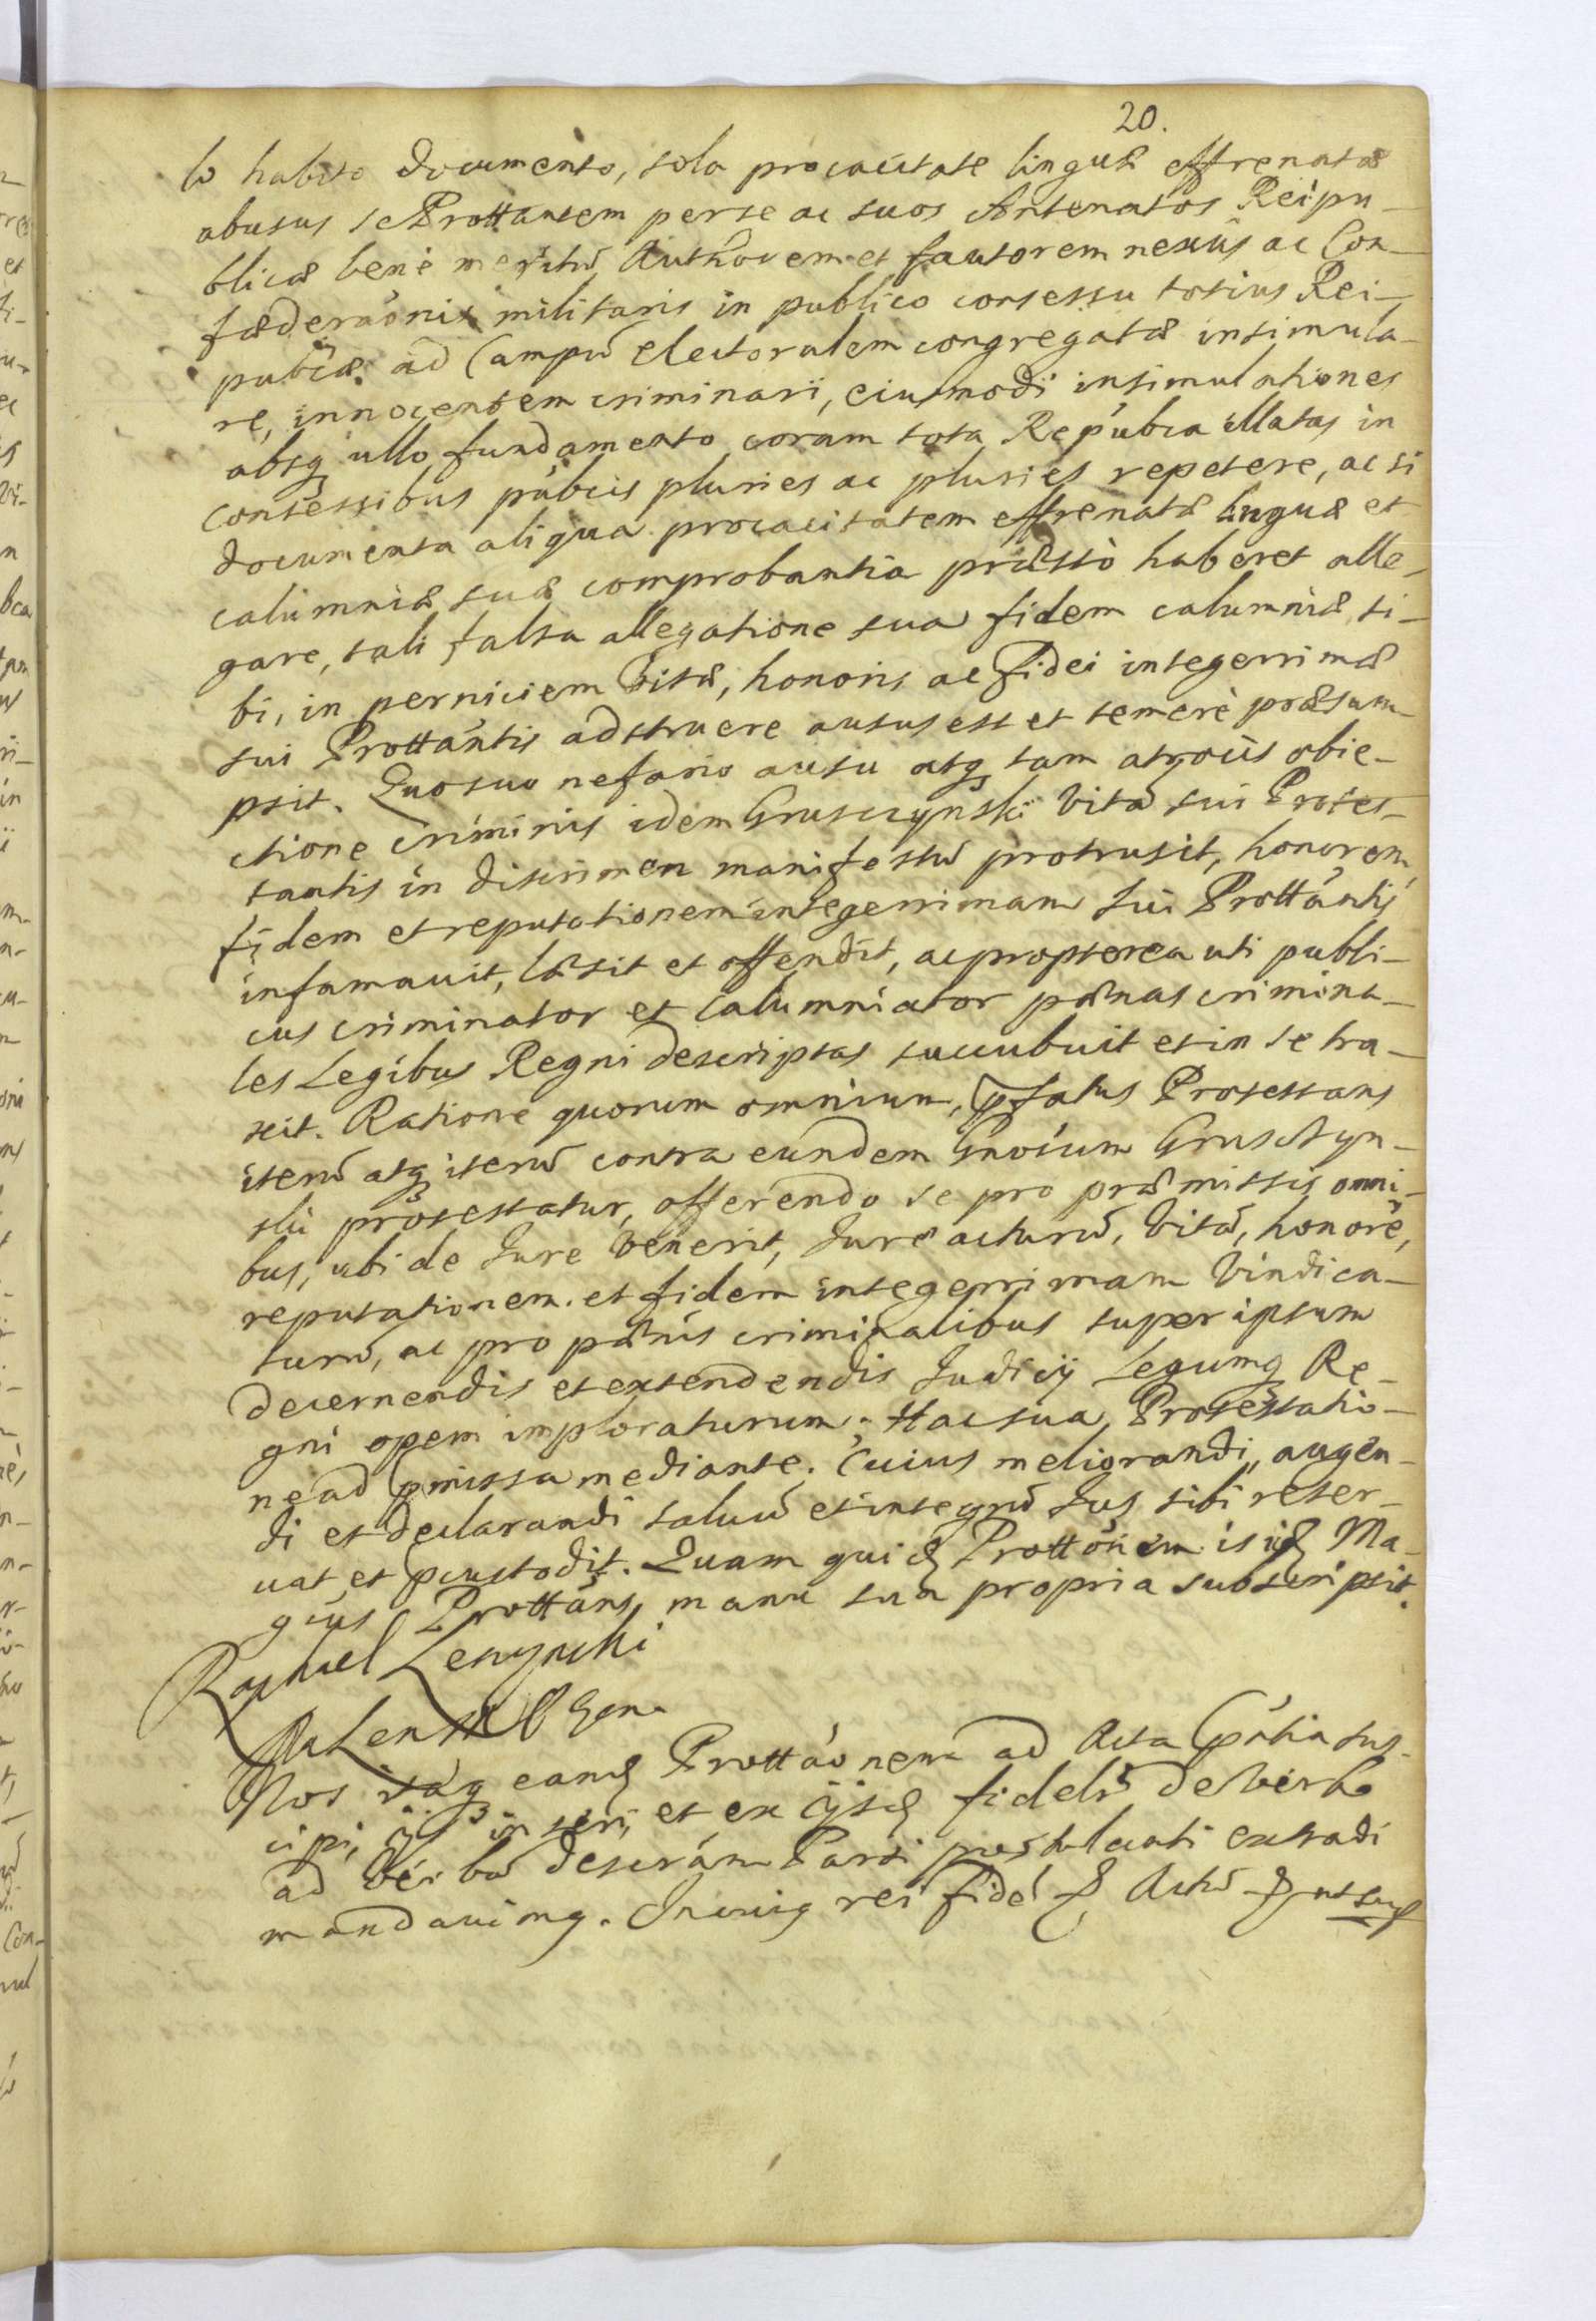 20.
lo habito documento, sola procacitate linguæ effrenatæ
abusus se Prottantem per se ac suos Antenatos Reipu-
blicæ bene meritũ Authorem et fautorem nexûs ac Con-
fæderaõnis militaris in publico consessu totius Rei-
pubcæ ad Campũ electoralem congregatæ insimula-
re, innocentem criminari, eiusmodi insimulationes
absq ullo fundamento coram tota Repubca illatas in
consessibus pubcis pluries ac pluries repetere, ac si
documenta aliqua procacitatem effrenatæ linguæ et
calumniæ suæ comprobantia præsto haberet alle-
gare, tali falsa allegatione sua fidem calumniæ si-
bi, in perniciem vitæ, honoris ac fidei integerrimæ
sui Prottantis adstruere ausus est et temerè præsum-
psit. Quo suo nefario ausu atq tam atrocis obie-
ctione criminis idem Grusczynski vitã sui Protes-
tantis in discrimen manifestũ protrusit, honorem,
fidem et reputationem integerrimam sui Prottantis
infamauit, læsit et offendit, ac propterea uti publi-
cus criminator et calumniator pœnas crimina-
les Legibus Regni descriptas succubuit et in se tra-
xit. Ratione quorum omnium, pfatus Protestans
iterũ atq iterũ contra eundem Gnosum Grusczyn-
ski protestatur, offerendo se pro præmissis omni-
bus, ubi de Jure venerit, Jure acturũ, vitã, honorẽ,
reputationem et fidem integerrimam vindica-
turũ, ac pro pœnis criminalibus super ipsum
decernendis et extendendis Judicij Legumq Re-
gni opem imploraturum; Hac sua Protestatio-
ne ad pmissa mediante. Cuius meliorandi, augen-
di et declarandi saluũ et integrũ Jus sibi reser-
uat et pcustodit. Quam quid Prottõnem is id Ma-
gcus Prottans manu sua propria subscripsit.
Raphael Leszynski
Nos itaq eamd Prottaõnem ad Acta pñtia sus-
cipi, ijs inseri, et ex ijsd fideli de verbo
ad verbũ descrám Parti postulanti extradi
mandauimq. In cuiq rei fidẽ Actũ ut sup